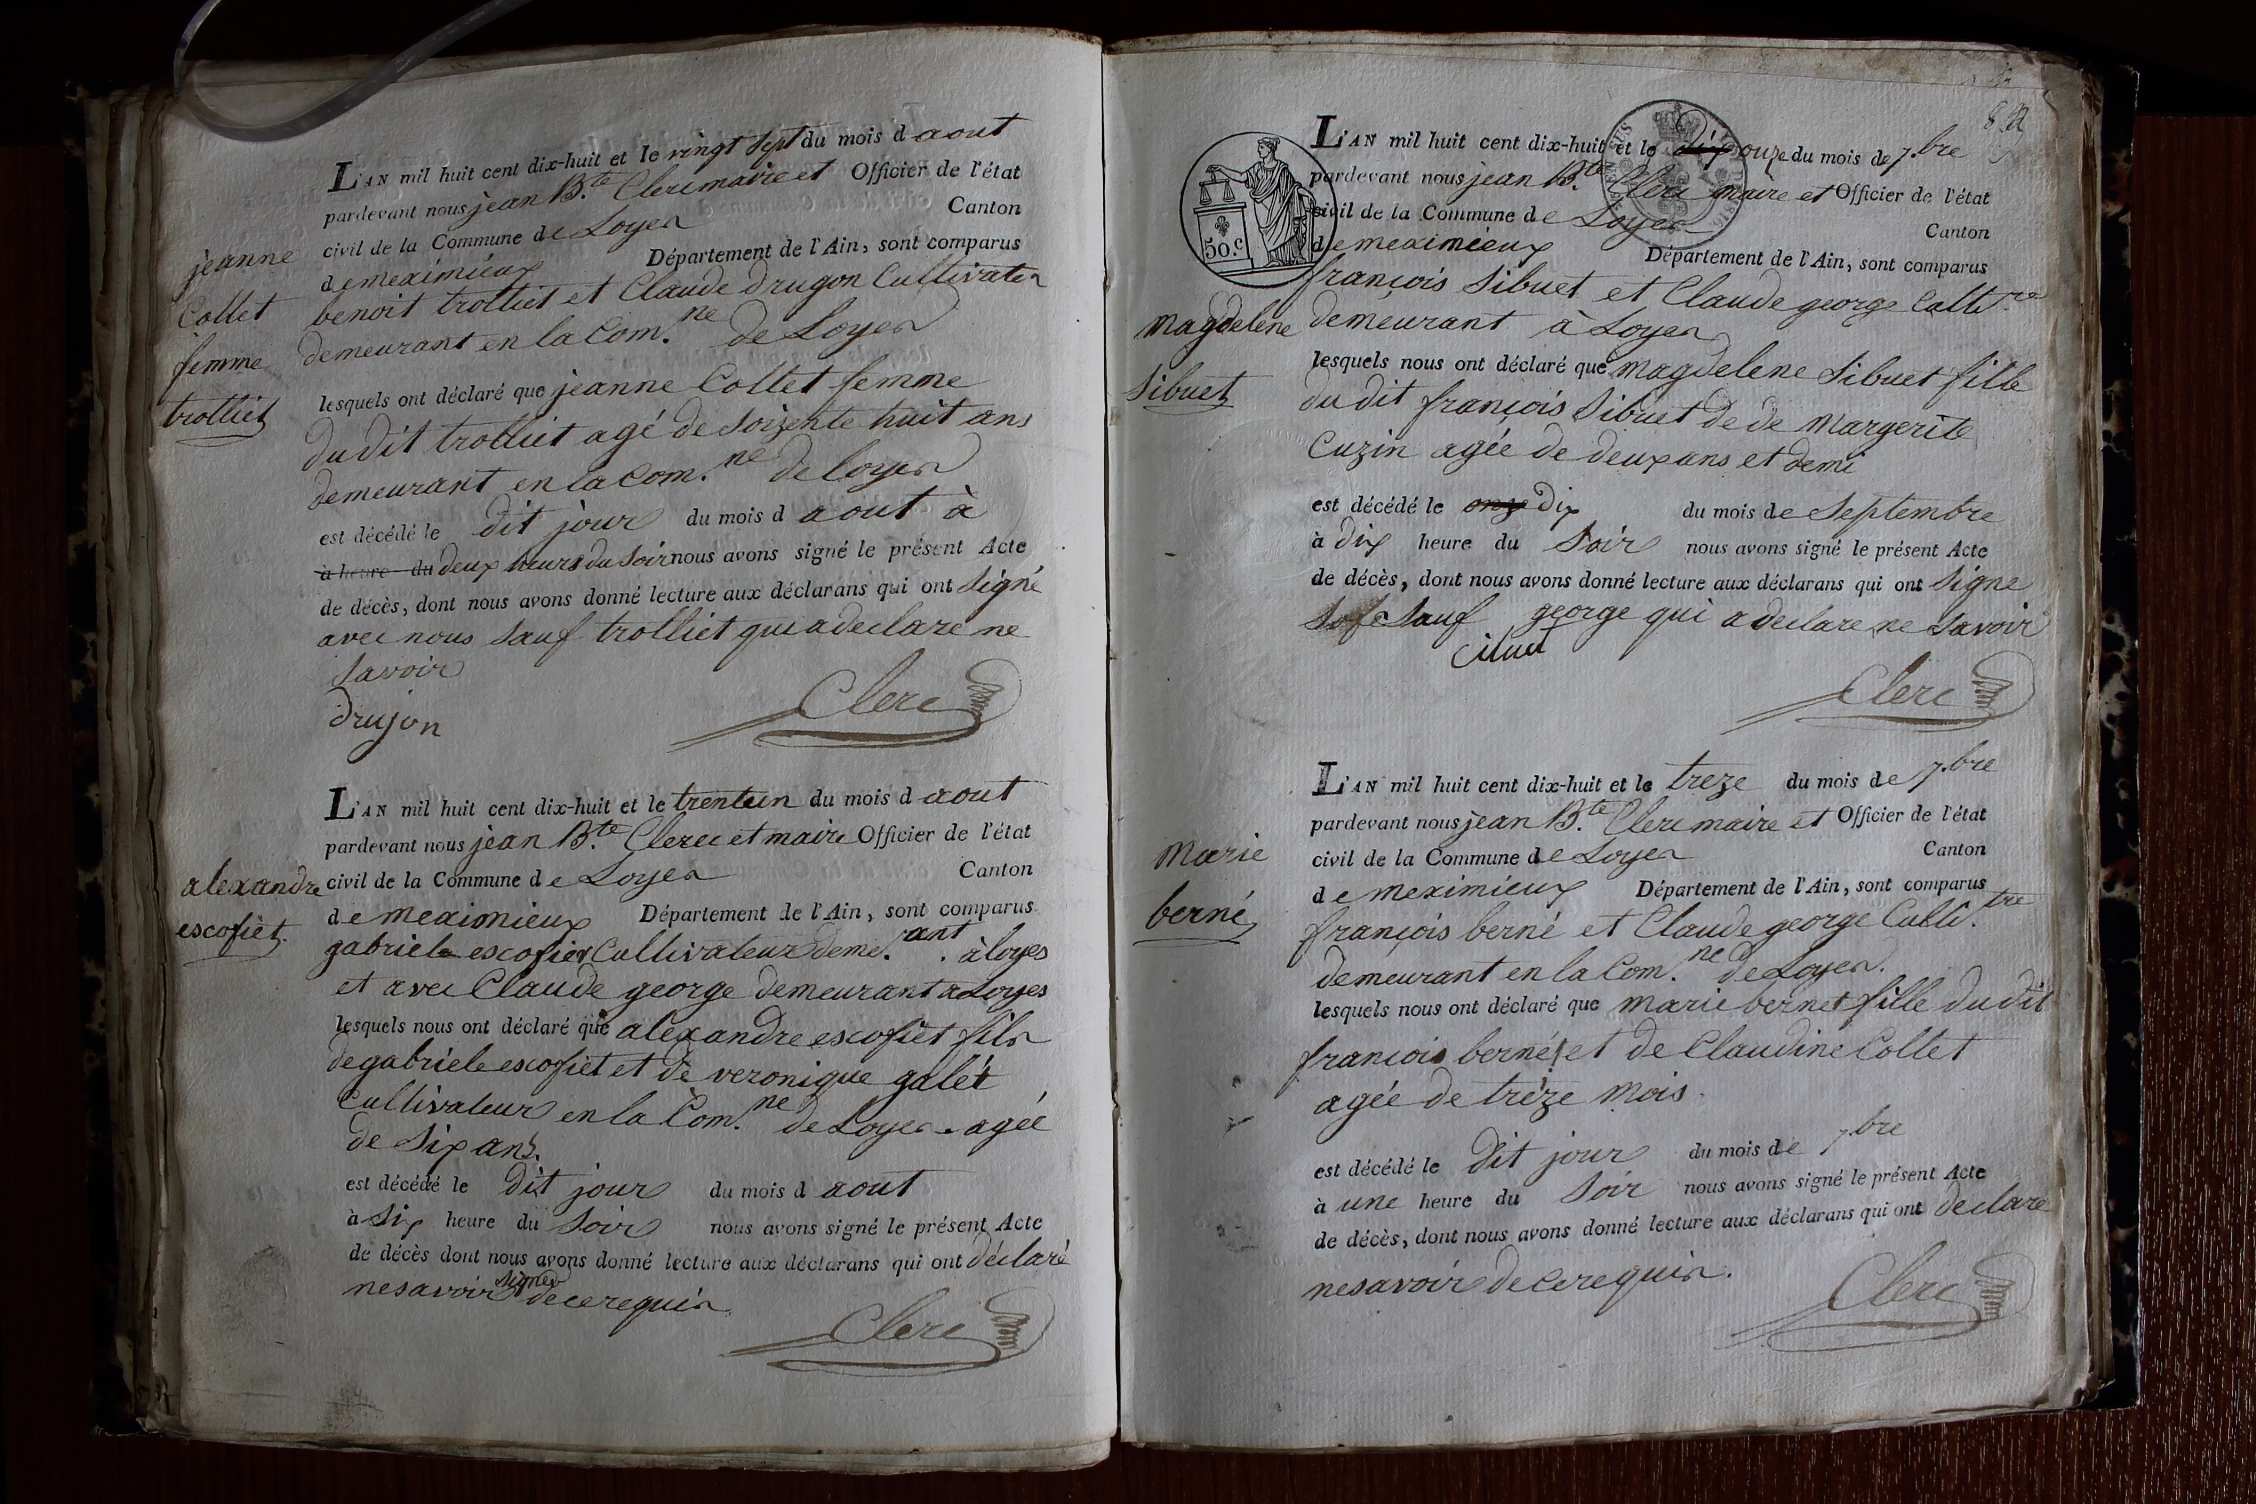 L'AN mil huit cent dix-huit et le vingt sept du mois d aout
pardevant nous jean B.te Clerc maire et Officier de l'état
civil de la Commune de Loyes Canton
de meximieux Département de l'Ain, sont comparus
benoit trolliet et Claude drugon Cultivater
demeurant en la Com.ne de Loyes
lesquels ont déclaré que jeanne Collet femme
du dit trolliet agé de soizente huit ans
demeurant en la Com.ne de loyes
est décédé le dit jour du mois d aout à
à heure du deux heurs du soir nous avons signé le présent Acte
de décès, dont nous avons donné lecture aux déclarans qui ont signé
avec nous sauf trolliet qui a declare ne
savoir
drujon
Clerc
jeanne
Collet
femme
trolliet
L'AN mil huit cent dix-huit et le trenteun du mois d aout
pardevant nous jean B.te Clerc et maire Officier de l'état
civil de la Commune de Loyes Canton
de meximieux Département de l'Ain, sont comparus
gabriele escofier Cultivateur deme.ant à loyes
et avec Claude george demeurant a Loyes
lesquels nous ont déclaré que alexandre escofiet fils
de gabriele escofiet et de veronique galét
Cultivateur en la Com.ne de Loyes agée
de six ans.
est décédé le dit jour du mois d aout
à six heure du soir nous avons signé le présent Acte
de décès dont nous avons donné lecture aux déclarans qui ont déclaré
ne savoir signer de ce requis
Clerc
alexandre
escofiet
82
50.c
L'AN mil huit cent dix-huit et le dix onze du mois de 7.bre
pardevant nous jean B.te Clerc maire et Officier de l'état
civil de la Commune de Loyes Canton
de meximieux Département de l'Ain, sont comparus
françois Sibuet et Claude george Cult.re
demeurant à Loyes
lesquels nous ont déclaré que Magdelene Sibuet fille
du dit françois Sibuet de de Margerite
Cuzin agée de deux ans et demi
est décédé le onze dix du mois de Septembre
à dix heure du Soir nous avons signé le présent Acte
de décès, dont nous avons donné lecture aux déclarans qui ont signe
sauf george qui a declare ne savoir
Clerc
Magdelene
Sibuet
L'AN mil huit cent dix-huit et le treze du mois de 7.bre
pardevant nous jean B.te Clerc maire et Officier de l'état
civil de la Commune de Loyes Canton
de meximieux Département de l'Ain, sont comparus
françois berné et Claude george Culti.tre
demeurant en la Com.ne de Loyes.
lesquels nous ont déclaré que marie bernet fille du dit
francois berné et de Claudine Collet
agée de trèze mois
est décédé le dit jour du mois de 7.bre
à une heure du Soir nous avons signé le présent Acte
de décès, dont nous avons donné lecture aux déclarans qui ont declare
ne savoir de ce requis.
Clerc
Marie
berné